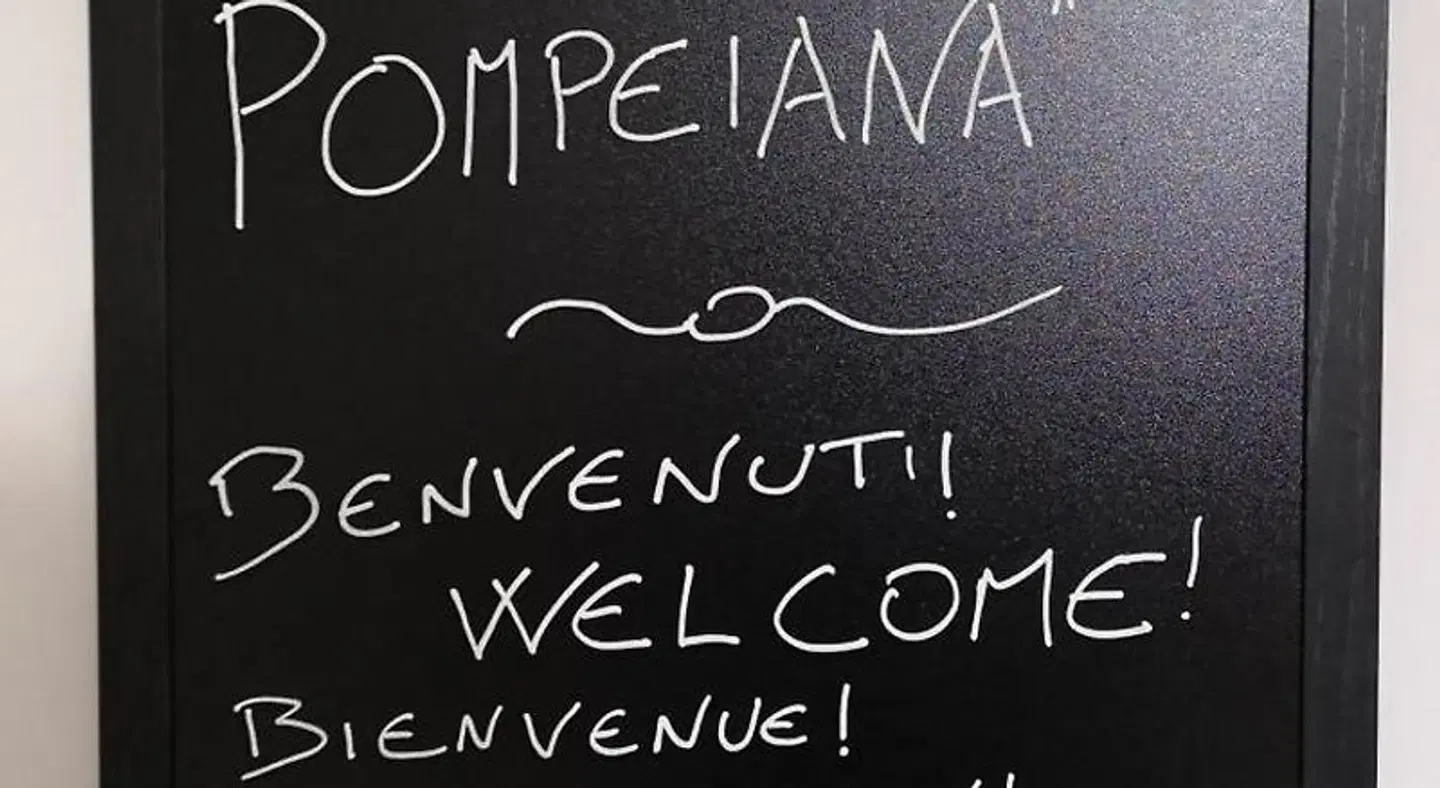 POMPEIANA"
BENVENUTI!
WELCOME!
BIENVENUE!